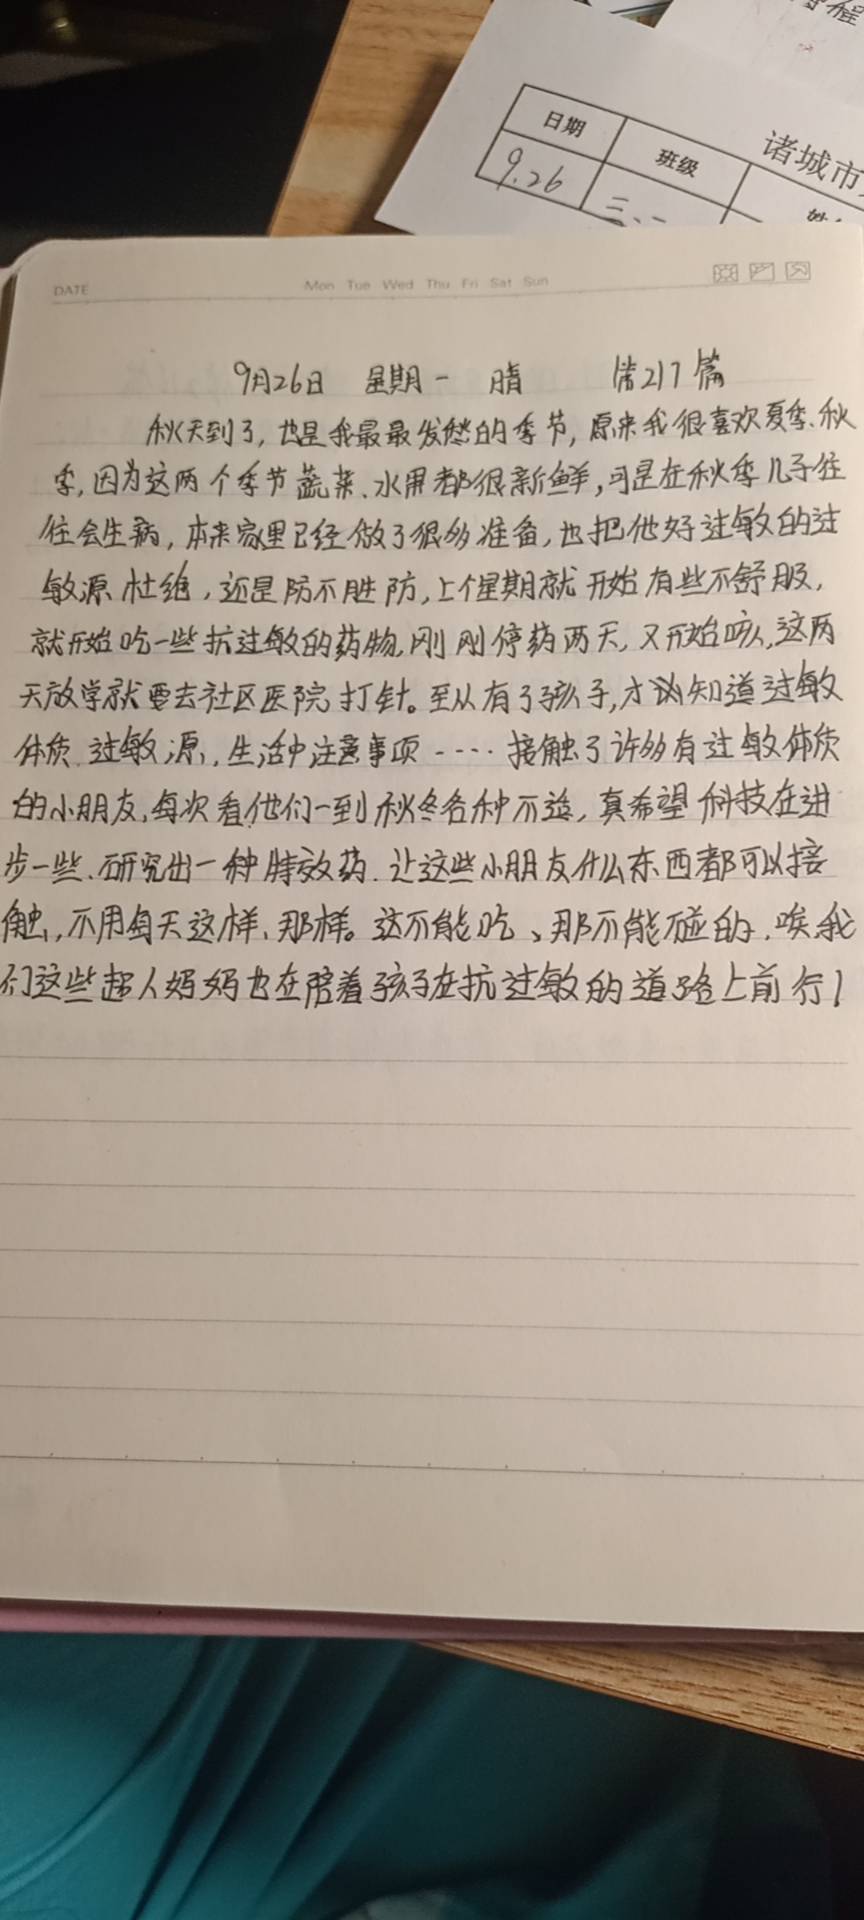 日期
班级
诸城市
9.26
DATE
Mon Tue Wed Thu Fri Sat Sun
9月26日 星期一 晴 第217篇
秋天到了,也是我最最发愁的季节,原来我很喜欢夏季、秋
季,因为这两个季节蔬菜、水果都很新鲜,可是在秋季儿子往
往会生病,本来家里已经做了很多准备,也把他好过敏的过
敏源杜绝,还是防不胜防,上个星期就开始有些不舒服,
就开始吃一些抗过敏的药物,刚刚停药两天,又开始咳,这两
天放学就要去社区医院打针。至从有了孩子,才认知道过敏
体质、过敏源,生活中注意事项……接触了许多有过敏体质
的小朋友,每次看他们一到秋冬各种不适,真希望科技在进
步一些、研究出一种特效药.让这些小朋友什么东西都可以接
触,不用每天这样、那样。这不能吃、那不能碰的,唉,我
们这些超人妈妈也在陪着孩子在抗过敏的道路上前行!